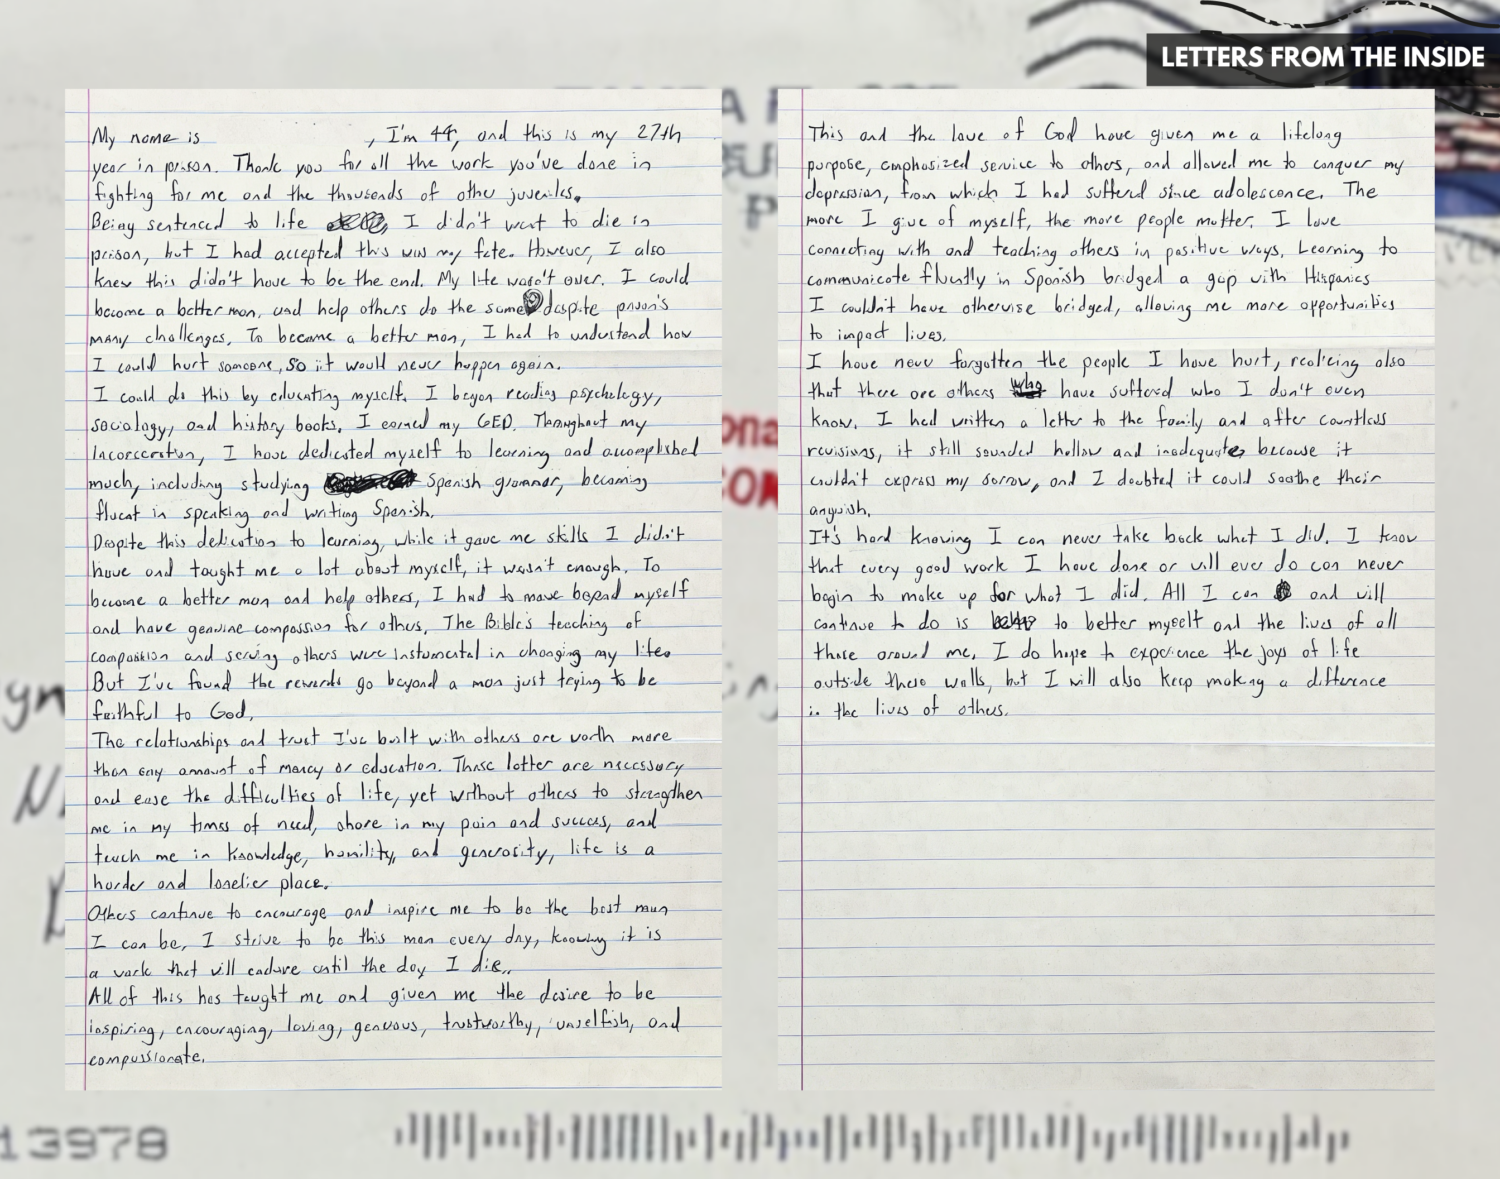 LETTERS FROM THE INSIDE
My name is , I'm 44, and this is my 27th
year in prison. Thank you for all the work you've done in
fighting for me and the thousands of other juveniles.
Being sentenced to life I didn't want to die in
prison, but I had accepted this was my fate. However, I also
knew this didn't have to be the end. My life wasn't over. I could
become a better man, and help others do the same despite prison's
many challenges. To become a better man, I had to understand how
I could hurt someone, so it would never happen again.
I could do this by educating myself. I began reading psychology,
sociology, and history books. I earned my GED. Throughout my
incarceration, I have dedicated myself to learning and accomplished
much, including studying Spanish grammar, becoming
fluent in speaking and writing Spanish.
Despite this dedication to learning, while it gave me skills I didn't
have and taught me a lot about myself, it wasn't enough. To
become a better man and help others, I had to move beyond myself
and have genuine compassion for others. The Bible's teaching of
compassion and serving others were instumental in changing my life.
But I've found the rewards go beyond a man just trying to be
faithful to God.
The relationships and trust I've built with others are worth more
than any amount of money or education. These latter are necessary
and ease the difficulties of life, yet without others to strengthen
me in my times of need, share in my pain and success, and
teach me in knowledge, humility, and generosity, life is a
harder and lonelier place.
Others continue to encourage and inspire me to be the best man
I can be. I strive to be this man every day, knowing it is
a work that will endure until the day I die.
All of this has taught me and given me the desire to be
inspiring, encouraging, loving, generous, trustworthy, unselfish, and
compassionate.
This and the love of God have given me a lifelong
purpose, emphasized service to others, and allowed me to conquer my
depression, from which I had suffered since adolescence. The
more I give of myself, the more people matter. I love
connecting with and teaching others in positive ways. Learning to
communicate fluently in Spanish bridged a gap with Hispanics
I couldn't have otherwise bridged, allowing me more opportunities
to impact lives.
I have never forgotten the people I have hurt, realizing also
that there are others have suffered who I don't even
know. I had written a letter to the family and after countless
revisions, it still sounded hollow and inadequate because it
couldn't express my sorrow, and I doubted it could soothe their
anguish.
It's hard knowing I can never take back what I did. I know
that every good work I have done or will ever do can never
begin to make up for what I did. All I can and will
continue to do is to better myself and the lives of all
those around me. I do hope to experience the joys of life
outside these walls, but I will also keep making a difference
in the lives of others.
13978